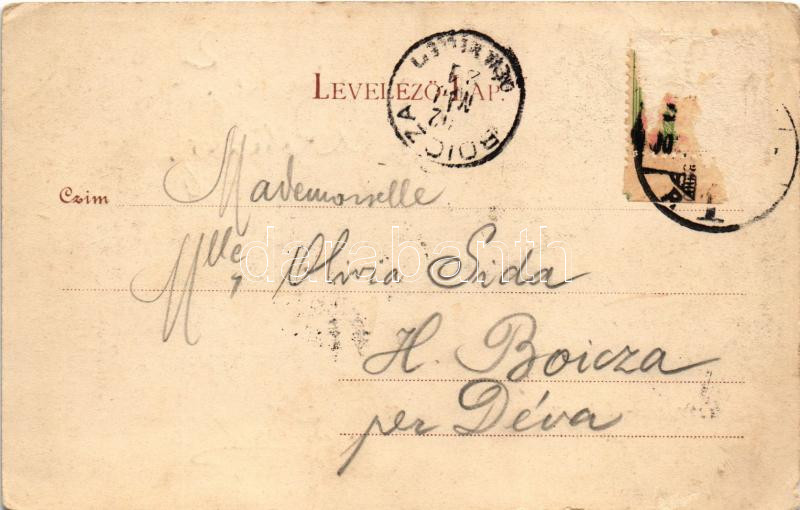 LEVELEZŐ LAP.
BOICZA
Czim
Mademoiselle
Mlle, Olivia Sida
H. Boicza
per Déva
darabanth